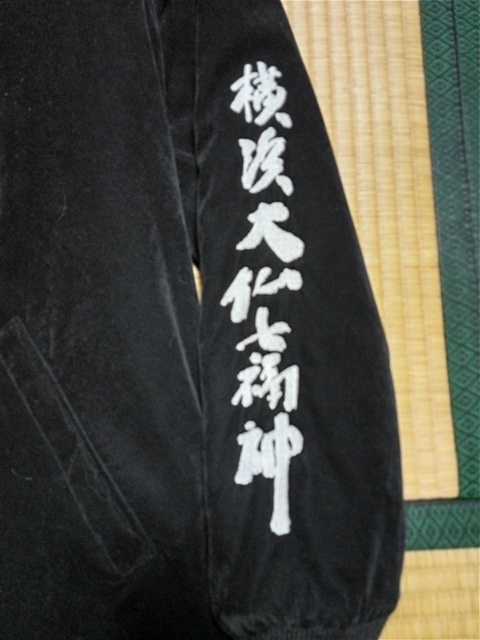 横浜大仏七福神